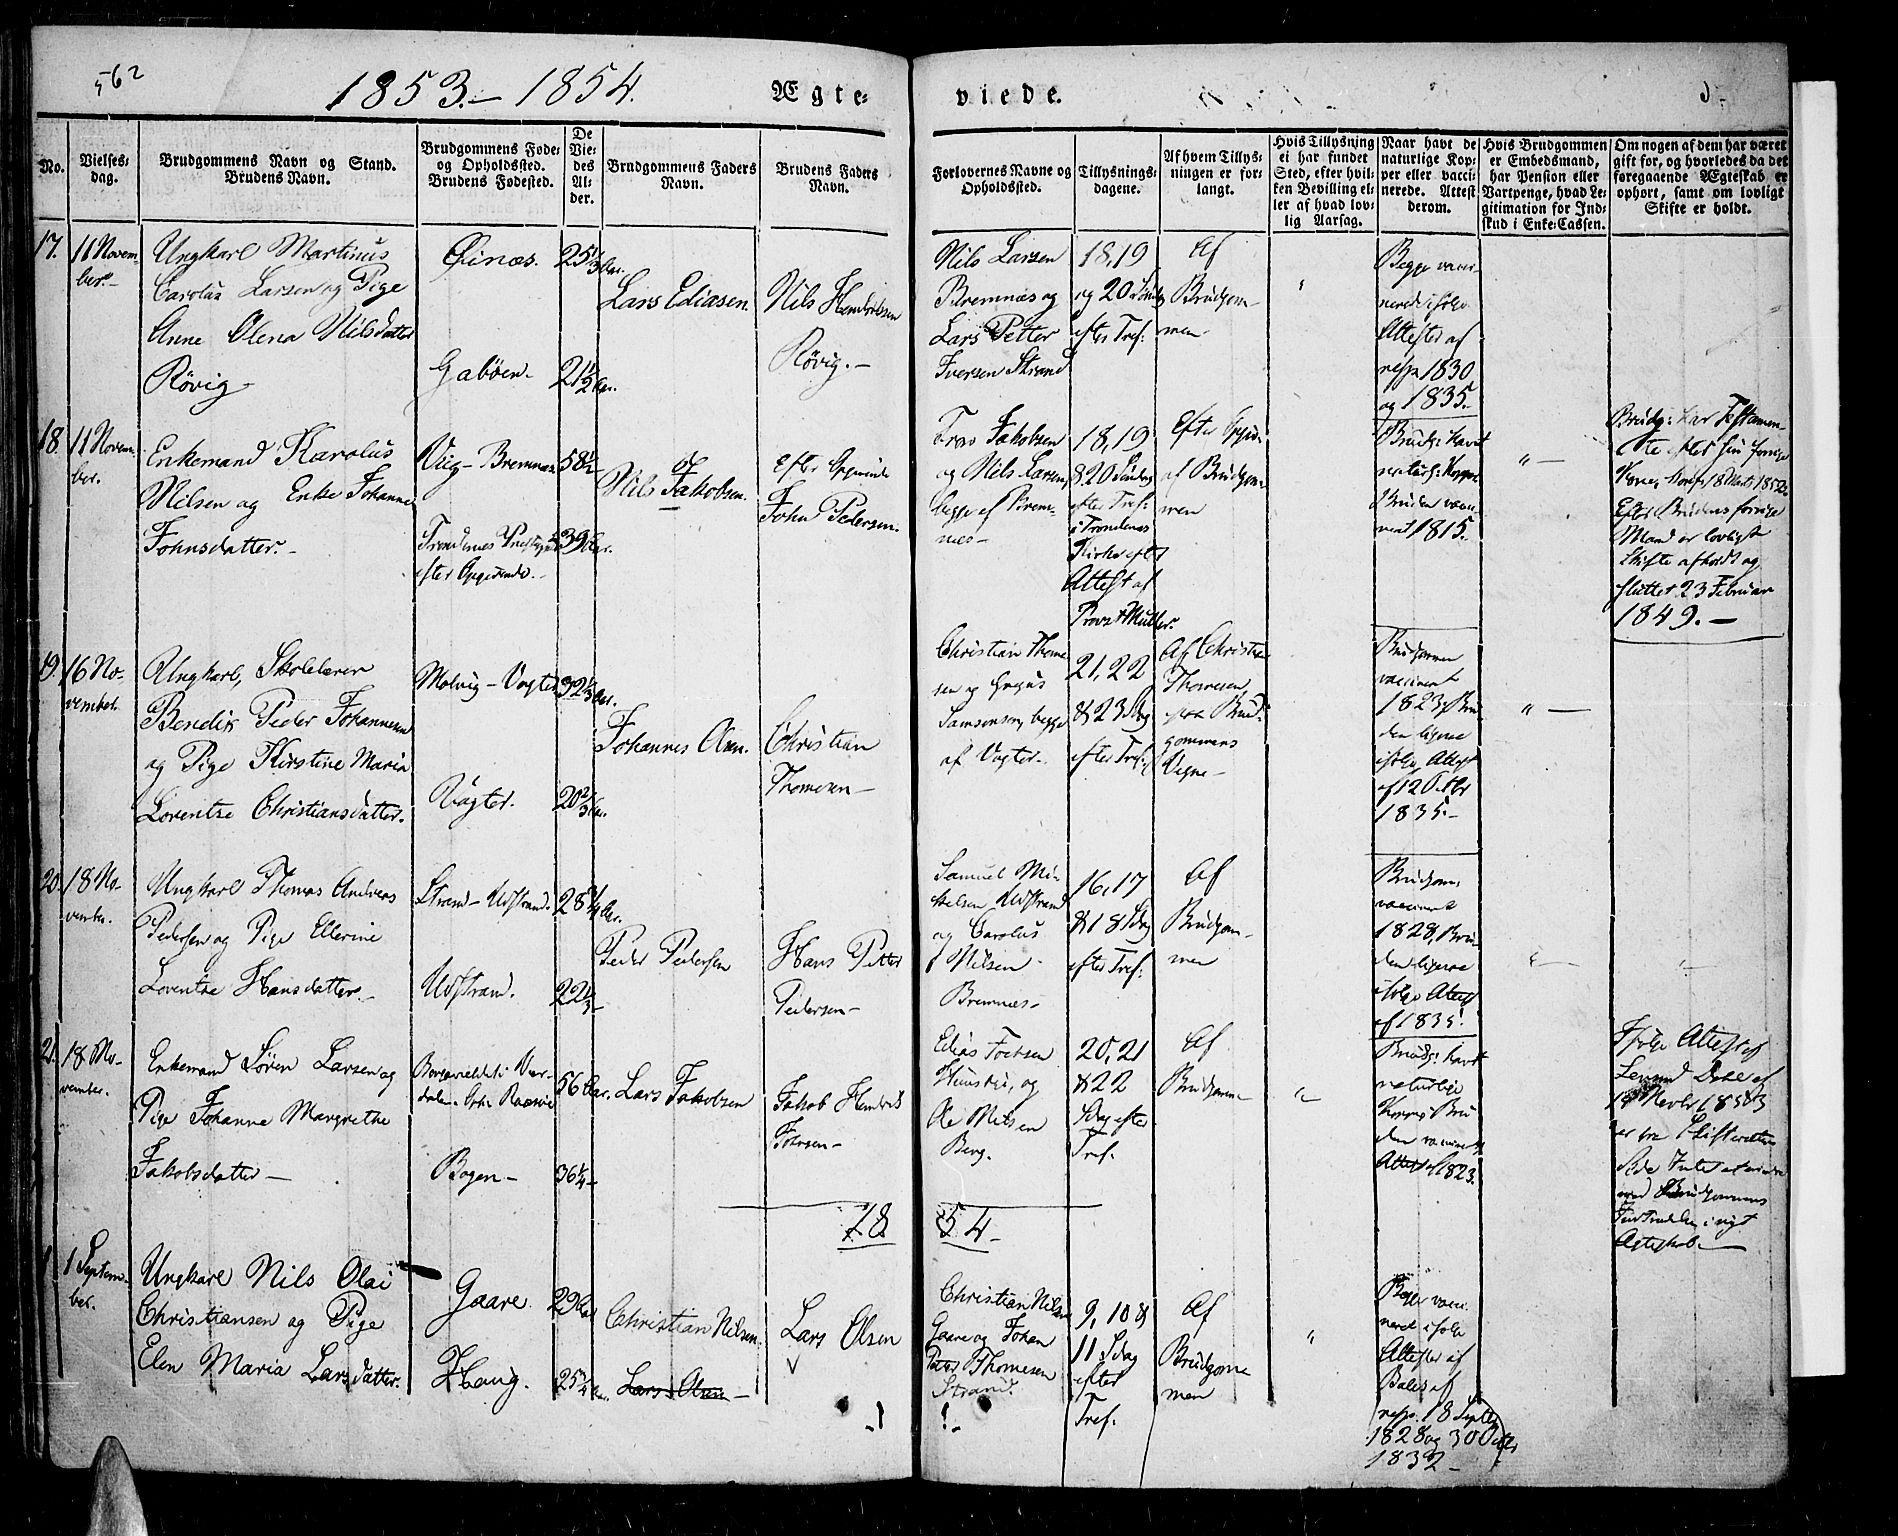 562
1853.- 1854.
Ægte-
viede.
No.
Vielses-
dag.
Brudgommens Navn og Stand.
Brudens Navn.
Brudgommens Føde-
og Opholdssted.
Brudens Fødested.
De
Vie-
des
Al-
der.
Brudgommens Faders
Navn.
Brudens Faders
Navn.
Forlovernes Navne og
Opholdssted.
Tillysnings-
dagene.
Af hvem Tillys-
ningen er for-
langt.
Hvis Tillysning
ei har fundet
Sted, efter hvil-
ken Bevilling el-
ler af hvad lov-
lig Aarsag.
Naar havt de
naturlige Kop-
per eller vacci-
nerede. Attest
derom.
Hvis Brudgommen
er Embedsmand,
har Pension eller
Vartpenge, hvad Le-
gitimation for Ind-
skud i Enke-Cassen.
Om nogen af dem har været
gift før, og hvorledes da det
foregaaende Ægteskab er
ophørt, samt om lovligt
Skifte er holdt.
17.
11 Novem-
ber.
Ungkarl Martinus
Carolus Larsen og Pige
Anne Olena Nilsdatter
Røvig
Øinæs.
Gabøen.
25 1/3 Aar.
21 1/2 Aar.
Lars Ediasen.
Nils Hendriksen
Røvig.-
Nils Larsen
Bremnæs og
Lars Petter
Iversen Strand
18, 19
og 20 Søndag
efter Tref:
Af
Brudgom-
men
Begge vacci-
nerede ifølge
Attester af
resp. 1830
og 1835.
18.
11 Novem-
ber.
Enkemand Karolus
Nilsen og Enke Johanna
Johnsdatter.-
Viig - Bremnæs
Trondenes Præstegjæld
efter Opgivende.-
58 1/2
39 Aar.
Nils Jakobsen.
Efter Opgivende
John Pedersen.
Jakobsen
og Nils Larsen,
begge af Brem-
næs-
18, 19
& 20 Søndag
efter Tref:
i Trondenes
Kirke efter
Attest af
Provst Müller.
Efter Opgiv:
af Brudgom-
men
Brudg: havt
naturl: Kopper
Bruden vacci-
neret 1815.
"-
Brudg: har Testamen-
te efter sin forrige
Kone,
Efter Brudens forrige
Mand er lovligt
Skifte afholdt og
sluttet 23 Februar
1849.-
19.
16 No-
vember.
Ungkarl, Skolelærer
Bendik Peder Johannesen
og Pige Kirstine Maria
Lorentze Christiansdatter.
Molvig - Vagter
Vagter.
32 1/3 Aar.
20 2/3 Aar.
Johannes Olsen.
Christian
Thomesen-
Christian Thome-
sen og
Samsonsen, begge
af Vagter.-
21, 22
& 23 Sdag
efter Tref:
Af Christian
Thomesen
paa Brud-
gommens
Vegne-
Brudgommen
vaccineret
1823, Bru-
den ligesaa
ifølge Attest
af 12 Octbr
1835.-
"-
20.
18 No-
vember.
Ungkarl Thomas Andreas
Pedersen og Pige Ellerine
Lorentze Hansdatter.-
Strand - Udstrand.
Udstrand.
28 3/4 Aar.
22 1/3-
Peder Pedersen
Hans Petter
Pedersen-
Samuel Mi-
kelsen Udstrand
og Carolus
Nilsen
Bremnæs-
16, 17
& 18 Sdag
efter Tref:
Af
Brudgom-
men
Brudgom:
vaccineret
1828, Bru-
den ligesaa
ifølge Attest
af 1835.
"-
21.
18 No-
vember.
Enkemand Søren Larsen og
Pige Johanne Margrethe
Jakobsdatter-
Bogen-
56 Aar.
36 1/4-
Lars Jakobsen
Jakob Hendrik
Edias
og
Ole Nilsen
Berg.
20, 21
& 22
Sdag efter
Tref.
Af
Brudgomme
Brudg: havt
naturlige
Kopper, Bru-
den vaccineret
Attest af 1823.
"-
Ifølge Attest af
Lensmd Dahl af
Novbr 1853
er fra Skifterettens
Side Intet at erindre
mod Brudgommens
Indtrædelse i nyt
Ægteskab.-
18
54-
1
1 Septem-
ber.
Ungkarl Nils Olai
Christiansen og Pige
Elen Maria Larsdatter.
Gaare.
Haug.
29 Aar
25 3/4 Aar.
Christian Nilsen.
Lars Olsen-
Lars Olsen
Christian Nilsen
Gaare og Johan
Peter Thomesen
Strand.
9, 10 &
11 Sdag
efter
Tref.
Af
Brudgom-
men
"
Begge vacci-
neret ifølge
Attester af
resp. 18 Septbr
1828 og 30 Octbr
1832-